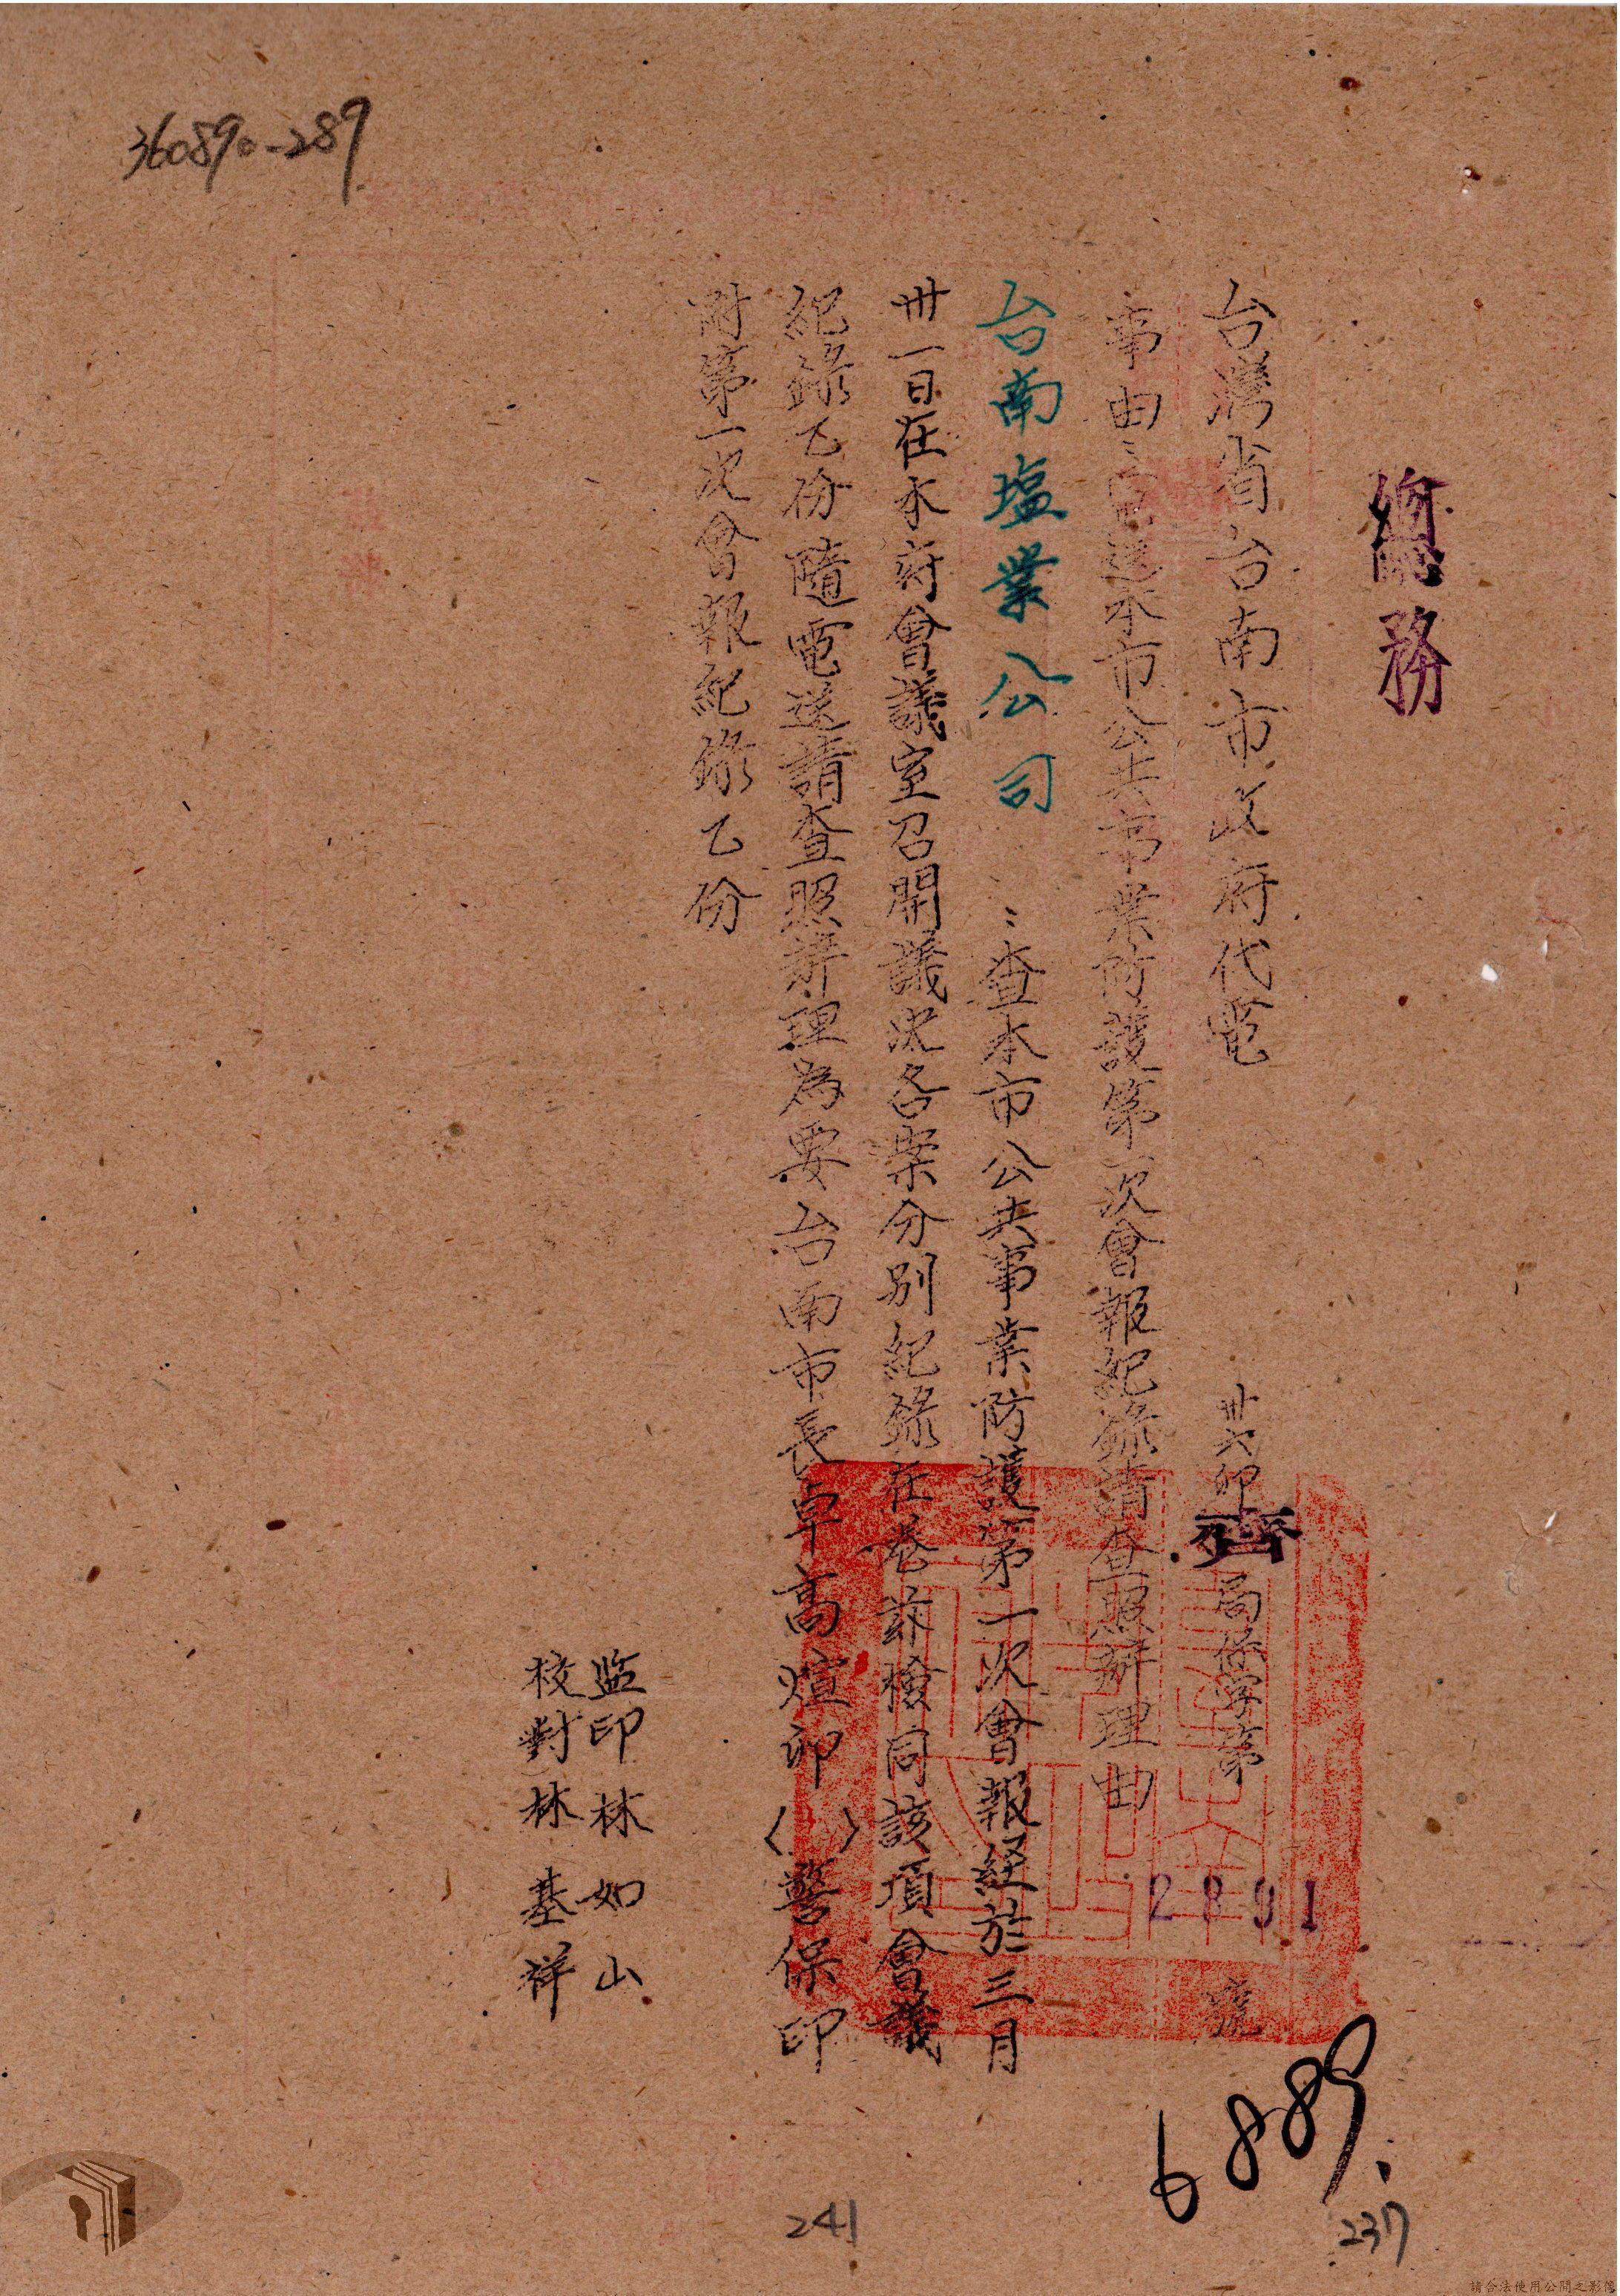 36089.-289
總務
台灣省台南市政府代電
卅六卯
齊
局保字第
2891
號
事由:電送本市公共事業防護第一次會報紀錄請查照辦理由
台南塩業公司:查本市公共事業防護第一次會報経於三月
卅一日在本府會議室召開議決各案分別紀錄在卷茲檢同該項會議
紀錄乙份隨電送請查照辦理為要台南市長卓高煊卯( )警保印
附第一次會報紀錄乙份
监印林如山
校對林基祥
6889.
237
241
請合法使用公開之影像